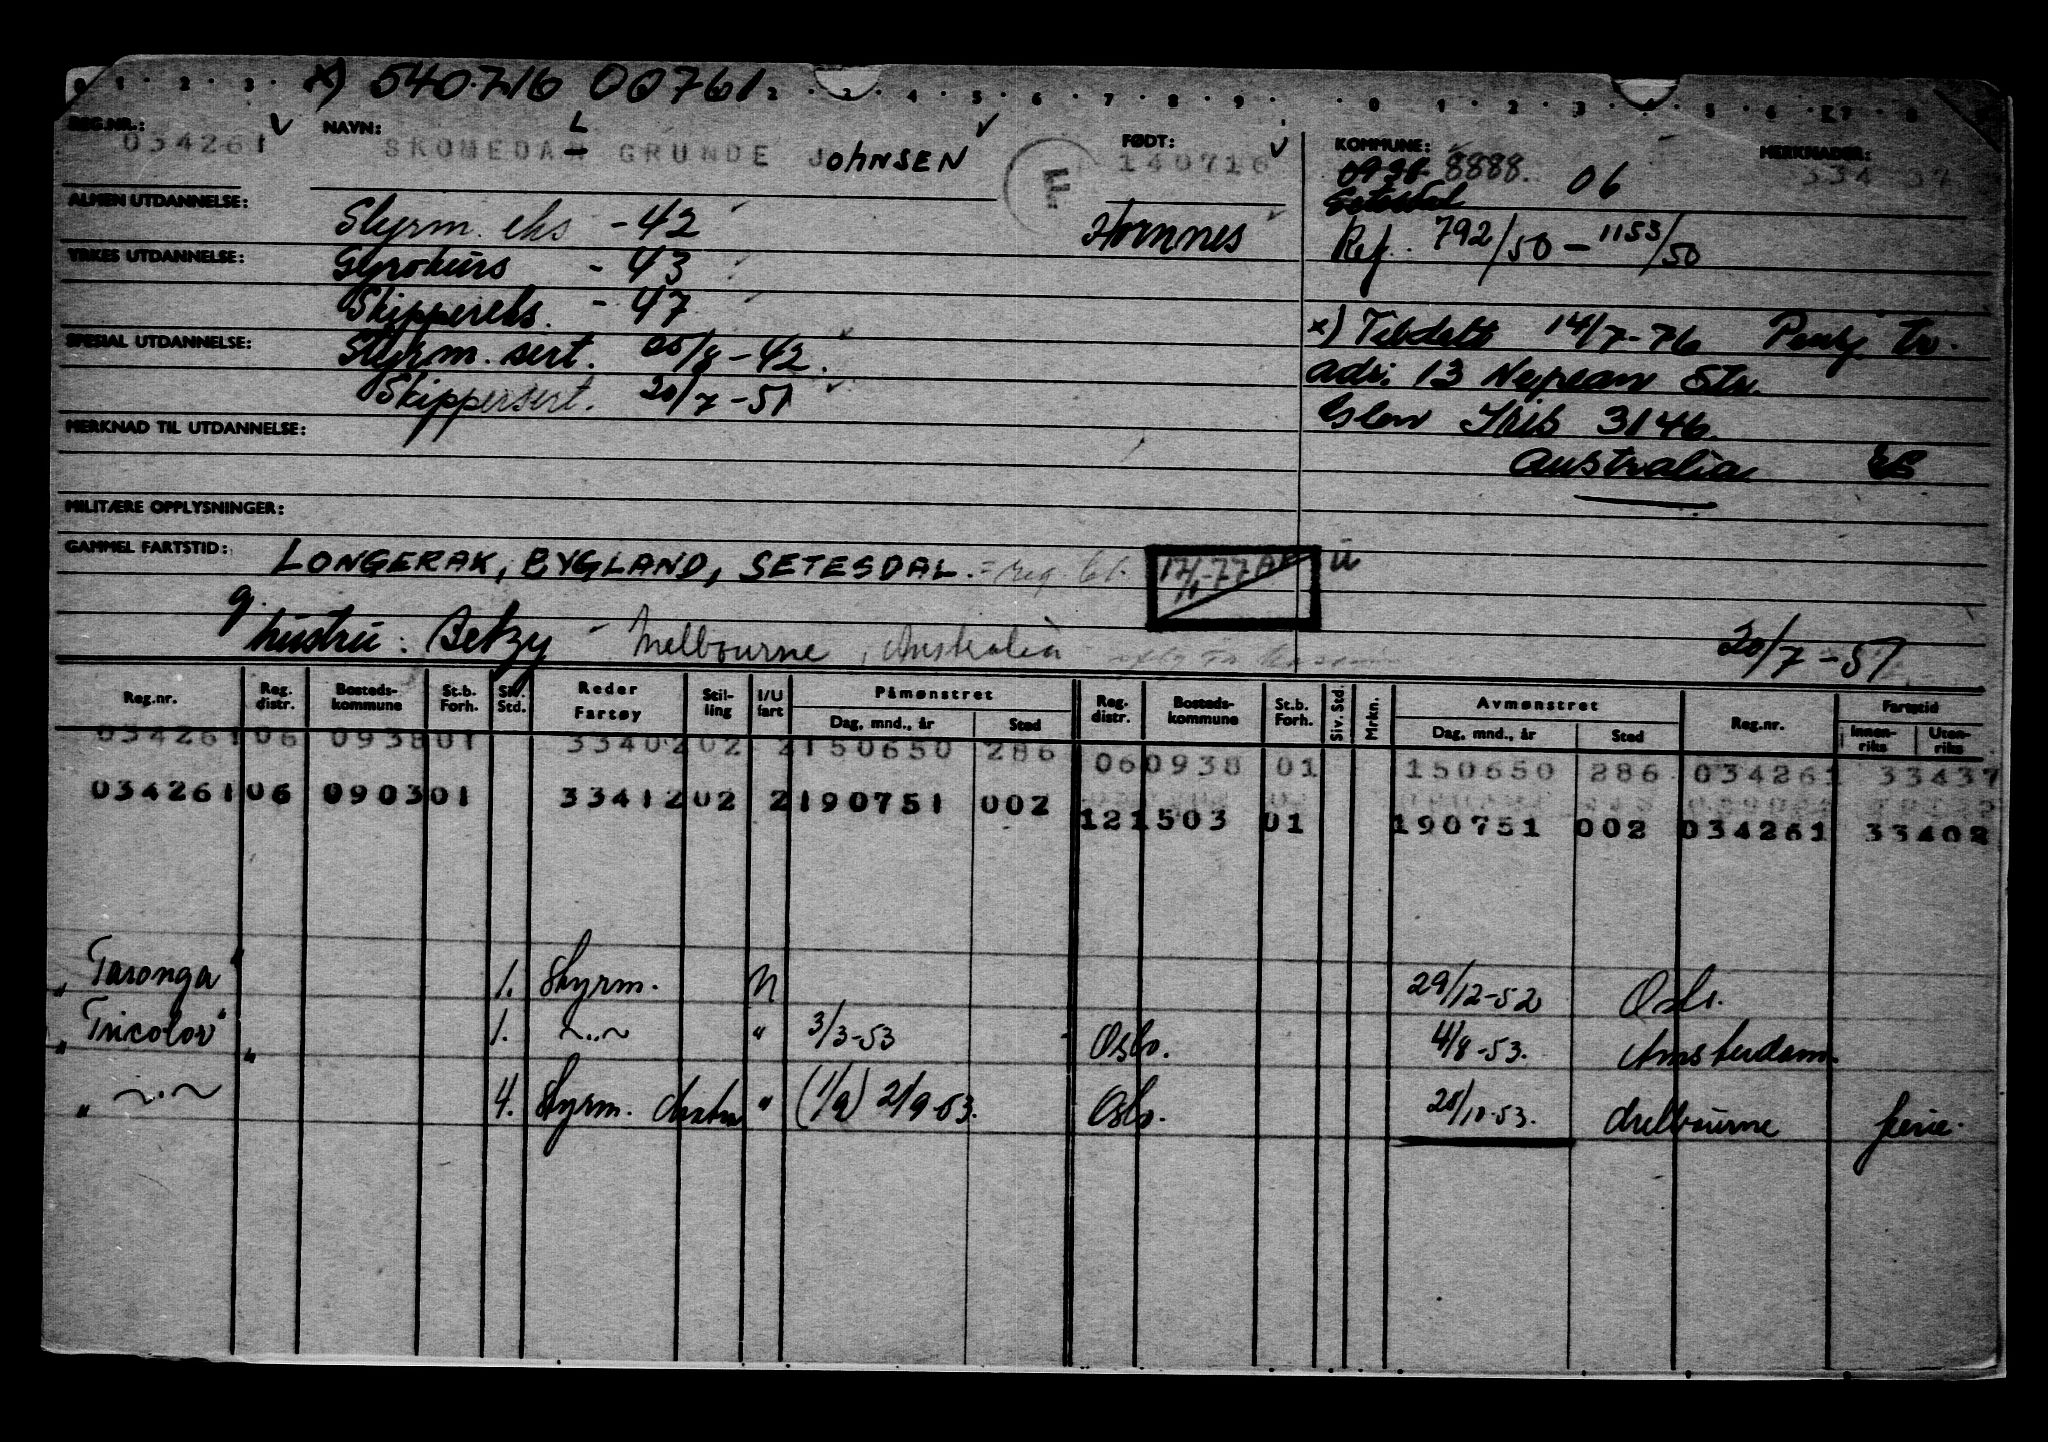 x) 540.716 00761
REG.NR.: NAVN: L FØDT: KOMMUNE: MERKNADER:
034261 SKOMEDA GRUNDE JOHNSEN 140716 8888. 06 334 37
F.
Setesdal
ALMEN UTDANNELSE: Styrm. eks - 42 Hornnes Ref. 792/50 - 1153/50
YRKES UTDANNELSE: Gyrokurs - 43
Skippereks. - 47
x) Tilsdatt 14/7-76 Penkj tr.
SPESIAL UTDANNELSE: Styrm. sert. 25/8-42.
adr: 13 Nepean Str.
Skippersert. 20/7-51
Glen Iris 3146.
MERKNAD TIL UTDANNELSE:
Australia
MILITÆRE OPPLYSNINGER:
GAMMEL FARTSTID: LONGERAK, BYGLAND, SETESDAL. = reg. 17/1-77 u
g.
hustru: Betzy - Melbourne, Australia 20/7-51
Reg.nr. Reg. distr. Bosteds-kommune St.b. Forh. Siv. Std. Reder Fartøy Stil-ling I/U fart Påmønstret Dag, mnd., år Sted Reg. distr. Bosteds-kommune St.b. Forh. Siv. Std. Mrkn. Avmønstret Dag, mnd., år Sted Reg.nr. Fartstid Innen-riks Uten-riks
034261 06 0938 01 33402 02 2 150650 286 06 0938 01 150650 286 034261 33437
034261 06 0903 01 33412 02 2 190751 002 12 1503 01 190751 002 034261 33402
"Taronga" 1. Styrm. U 29/12-52 Oslo.
"Tricolor" 1. ~..~ " 3/3-53 Oslo. 4/8-53. Amsterdam.
" ~.~ " 4. Styrm. " (1/9) 2/9-53. Oslo. 25/10-53. Melbourne ferie.